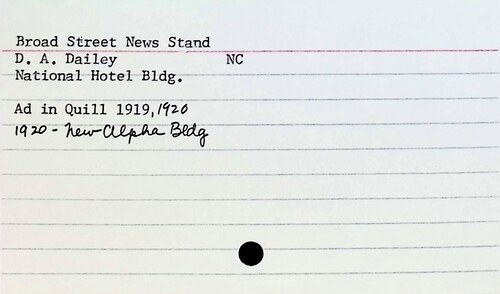 Broad Street News Stand
D. A. Dailey NC
National Hotel Bldg.
Ad in Quill 1919, 1920
1920 - New Alpha Bldg